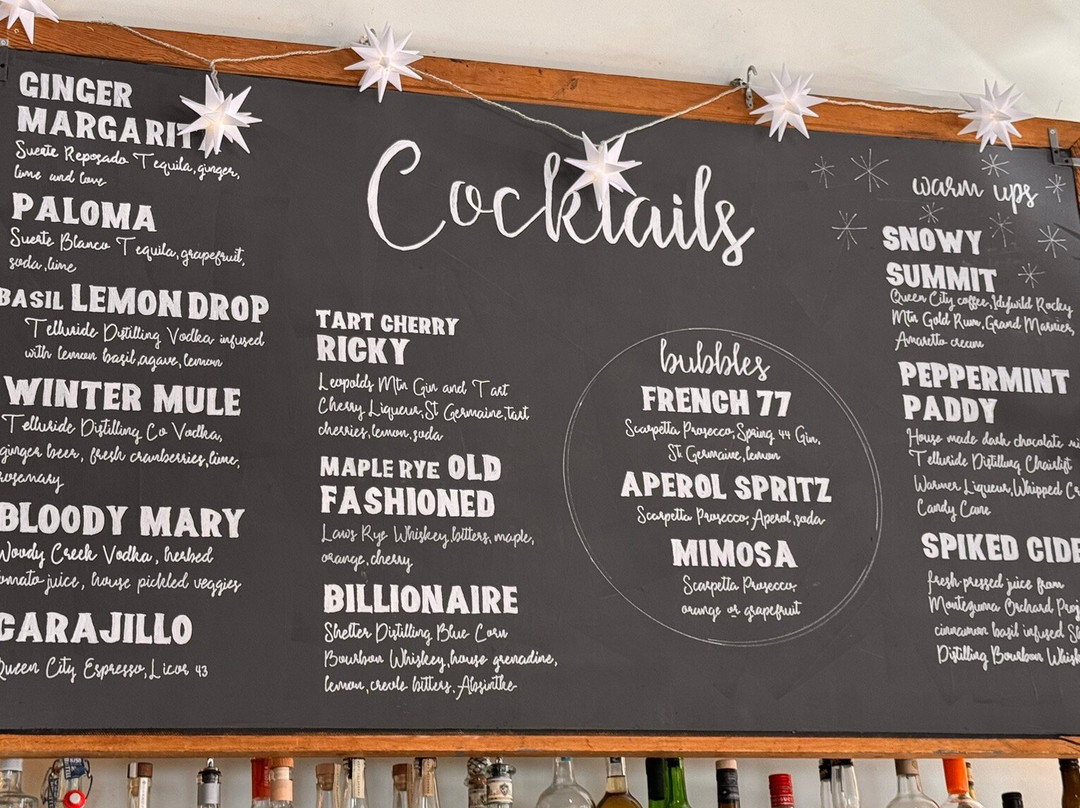 GINGER
MARGARITA
Suerte Reposado Tequila, ginger,
lime and love
PALOMA
Suerte Blanco Tequila, grapefruit,
soda, lime
BASIL LEMON DROP
Telluride Distilling Vodka infused
with lemon basil, agave, lemon
WINTER MULE
Telluride Distilling Co Vodka,
ginger beer, fresh cranberries, lime,
rosemary
BLOODY MARY
Woody Creek Vodka, herbed
tomato juice, house pickled veggies
CARAJILLO
Queen City Espresso, Licor 43
Cocktails
TART CHERRY
RICKY
Leopolds Mtn Gin and Tart
Cherry Liqueur, St Germaine, tart
cherries, lemon, soda
MAPLE RYE OLD
FASHIONED
Laws Rye Whiskey, bitters, maple,
orange, cherry
BILLIONAIRE
Shelter Distilling Blue Corn
Bourbon Whiskey, house grenadine,
lemon, creole bitters, Absinthe
bubbles
FRENCH 77
Scarpetta Prosecco, Spring 44 Gin,
St. Germaine, lemon
APEROL SPRITZ
Scarpetta Prosecco, Aperol, soda
MIMOSA
Scarpetta Prosecco
orange or grapefruit
warm ups
SNOWY
SUMMIT
Queen City coffee, Idylwild Rocky
Mtn Gold Rum, Grand Marnier,
Amaretto cream
PEPPERMINT
PADDY
House made dark chocolate
Telluride Distilling Chairlift
Warmer Liqueur, Whipped
Candy Cane
SPIKED CIDE
fresh-pressed juice from
Montezuma Orchard
cinnamon basil infused
Distilling Bourbon Whisk